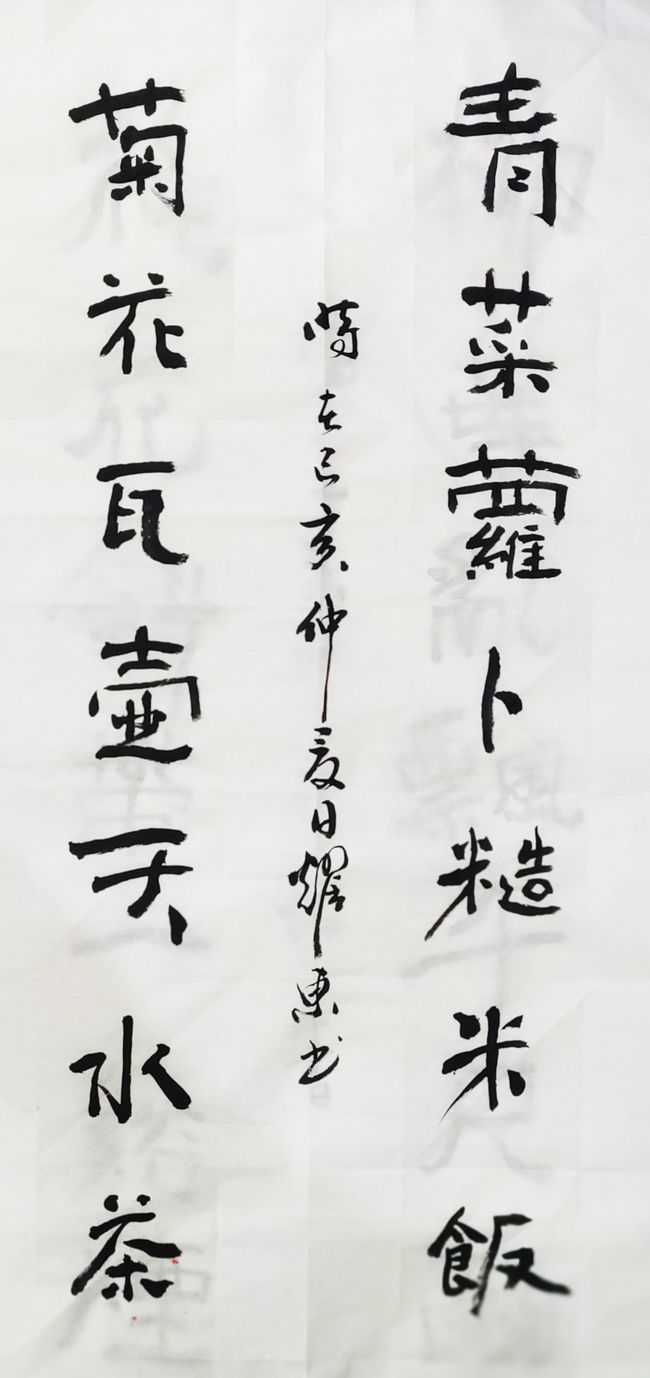 青菜蘿卜糙米飯
時在己亥仲夏日耀東书
菊花瓦壺天水茶